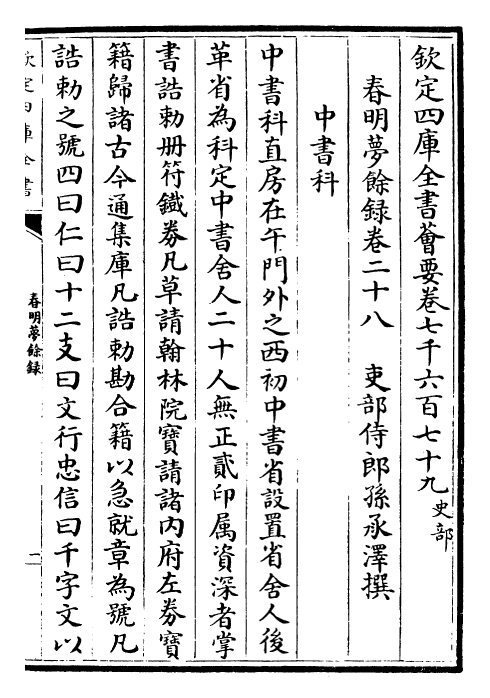 欽定四庫全書薈要卷七千六百七十九 史部
春明夢餘録卷二十八 吏部侍郎孫承澤撰
中書科
中書科直房在午門外之西初中書省設置省舍人後
革省為科定中書舍人二十人無正貳印属資深者掌
書誥勅册符鐵券凡草請翰林院寶請諸内府左券寶
籍歸諸古今通集庫凡誥勅勘合籍以急就章為號凡
誥勅之號四曰仁曰十二支曰文行忠信曰千字文以
欽定四庫全書
春明夢餘録